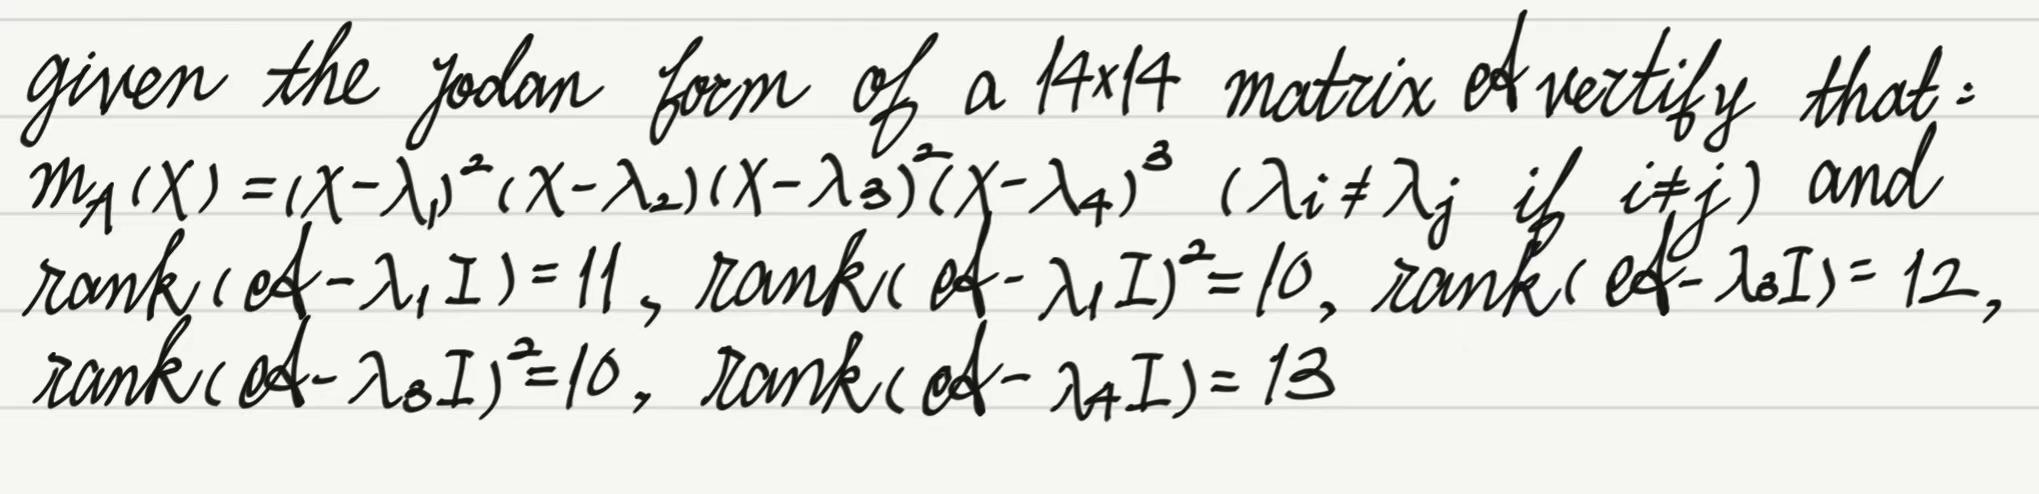 given the jodan form of a 14×14 matrix A vertify that:
m_A(X) = (X-λ₁)²(X-λ₂)(X-λ₃)²(X-λ₄)³ (λi ≠ λj if i≠j) and
rank(A-λ₁I) = 11, rank(A-λ₁I)² = 10, rank(A-λ₃I) = 12,
rank(A-λ₃I)² = 10, rank(A-λ₄I) = 13